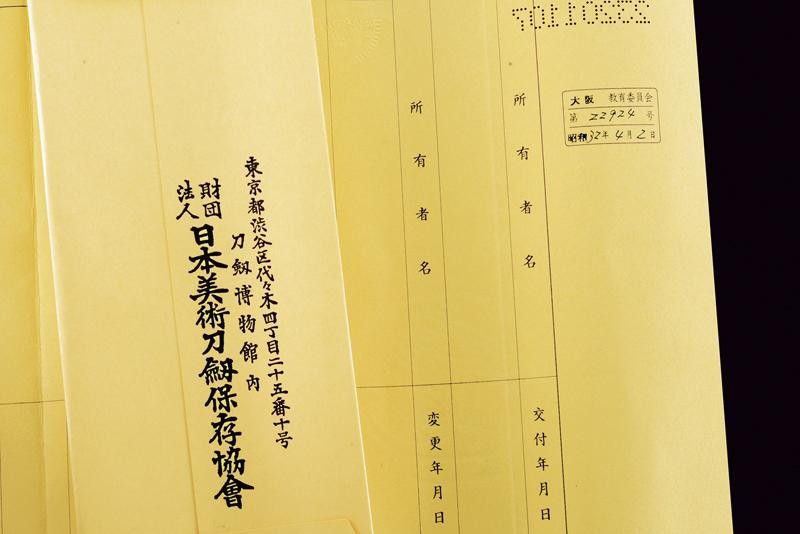 大阪 教育委員会
第 22924 号
昭和32年4月2日
所有者名
交付年月日
所有者名
変更年月日
東京都渋谷区代々木四丁目二十五番十号
刀劔博物館内
財団法人 日本美術刀劔保存協會